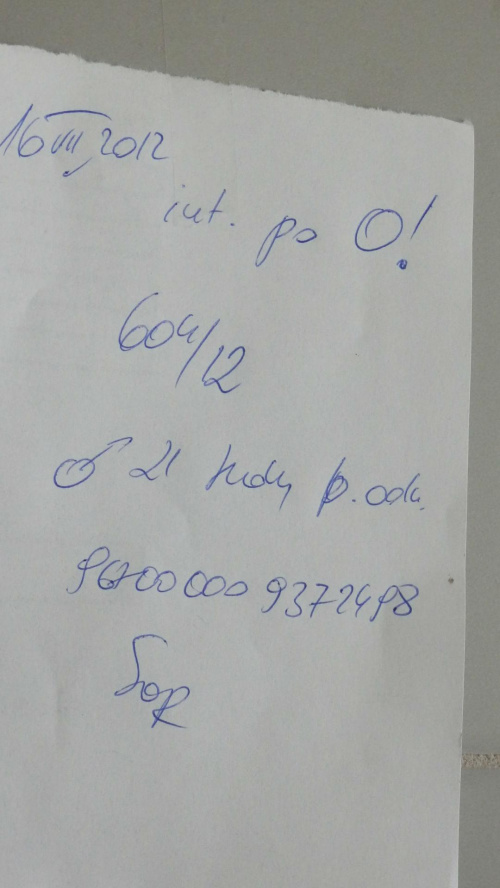 16 VII 2012
int. po O!
604/12
♂ 21 p. odł.
967000009372498